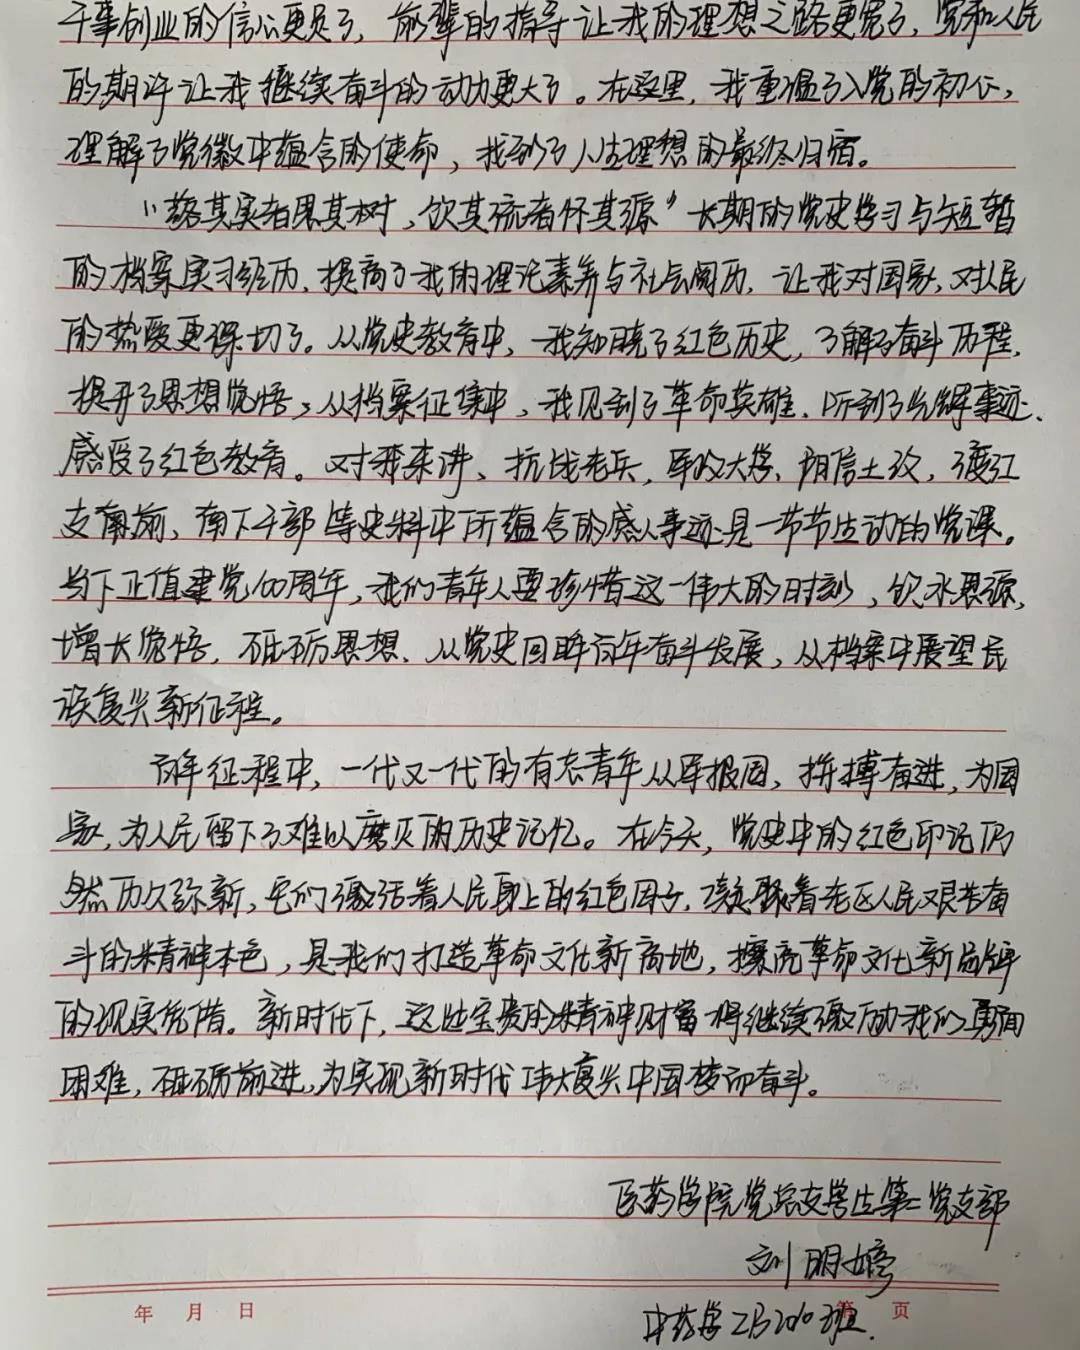 干事创业的信心更足了，前辈的指导让我的理想之路更宽了，党和人民
的期许让我继续奋斗的动力更大了。在这里，我重温了入党的初心，
理解了党徽中蕴含的使命，找到了人生理想的最终归宿。
“落其实者思其树，饮其流者怀其源”长期的党史学习与短暂
的档案实习经历，提高了我的理论素养与社会阅历，让我对国家，对人民
的热爱更深切了。从党史教育中，我知晓了红色历史，了解了奋斗历程，
提升了思想觉悟；从档案征集中，我见到了革命英雄，听到了先辈事迹，
感受了红色教育。对我来讲，抗战老兵，军政大学，阳信土改，渡江
支前，南下干部等史料中所蕴含的感人事迹是一节节生动的党课。
当下正值建党100周年，我们青年人要珍惜这一伟大的时刻，饮水思源，
增长觉悟，砥砺思想，从党史回眸百年奋斗发展，从档案中展望民
族复兴新征程。
百年征程中，一代又一代的有志青年从军报国，拼搏奋进，为国
家，为人民留下了难以磨灭的历史记忆。在今天，党史中的红色印记仍
然历久弥新，它们激活着人民身上的红色因子，凝聚着老区人民艰苦奋
斗的精神本色，是我们打造革命文化新高地，擦亮革命文化新品牌
的现实凭借。新时代下，这些宝贵的精神财富将继续激励我们勇闯
困难，砥砺前进，为实现新时代伟大复兴中国梦而奋斗。
医药学院党总支学生第二党支部
刘明婷
年 月 日 第 页
中药学 班